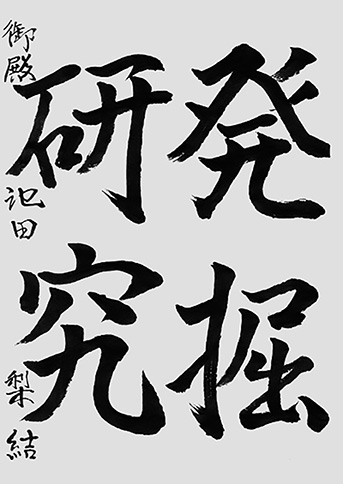 発掘
研究
御殿 池田 梨結